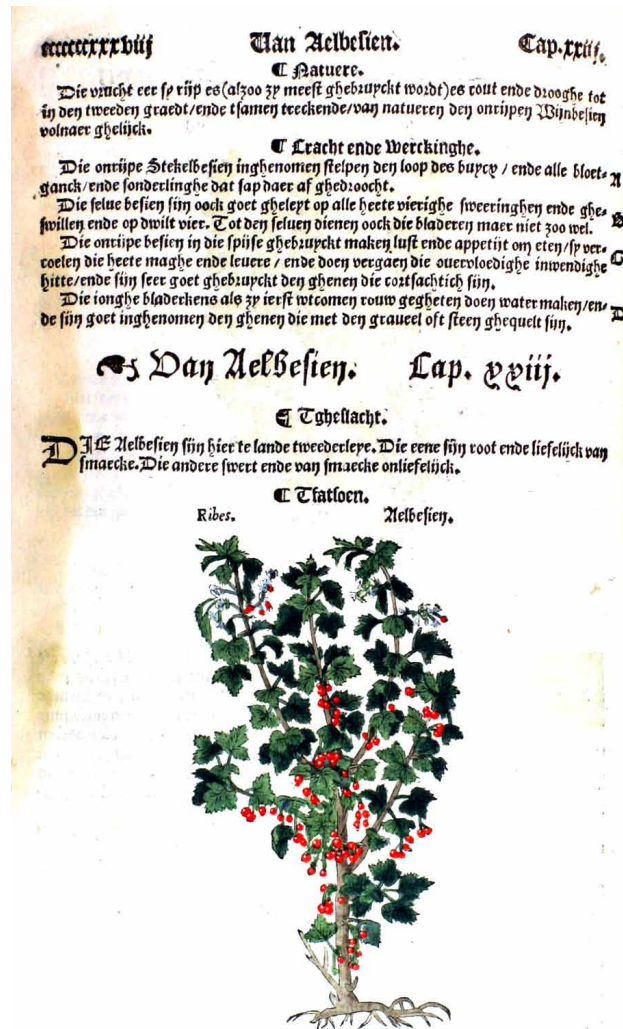 ccccccxxxviij Van Aelbesien. Cap. xxiij.
¶ Natuere.
Die vrucht eer sy rijp es (alzoo zy meest ghebruyckt wordt) es cout ende drooghe tot
in den tweeden graedt/ende tsamen treckende/van natueren den onrijpen Wijnbesien
volnaer ghelijck.
¶ Cracht ende Werckinghe.
Die onrijpe Stekelbesien inghenomen stelpen den loop des buycx / ende alle bloet-
ganck/ende sonderlinghe dat sap daer af ghedroocht. A
Die selue besien sijn oock goet gheleyt op alle heete vierighe sweeringhen ende ghe- B
swillen ende op dwilt vier. Tot den seluen dienen oock die bladeren maer niet zoo wel.
Die onrijpe besien in die spijse ghebruyckt maken lust ende appetijt om eten/sy ver- C
coelen die heete maghe ende leuere / ende doen vergaen die ouervloedighe inwendighe
hitte/ende sijn seer goet ghebruyckt den ghenen die cortsachtich sijn.
Die ionghe bladerkens als zy ierst wtcomen rouw gegheten doen water maken/en- D
de sijn goet inghenomen den ghenen die met den graueel oft steen ghequelt sijn.
Van Aelbesien. Cap. xxiij.
¶ Tgheslacht.
DIE Aelbesien sijn hier te lande tweederleye. Die eene sijn root ende liefelijck van
smaecke. Die andere swert ende van smaecke onliefelijck.
¶ Tfatsoen.
Ribes. Aelbesien.